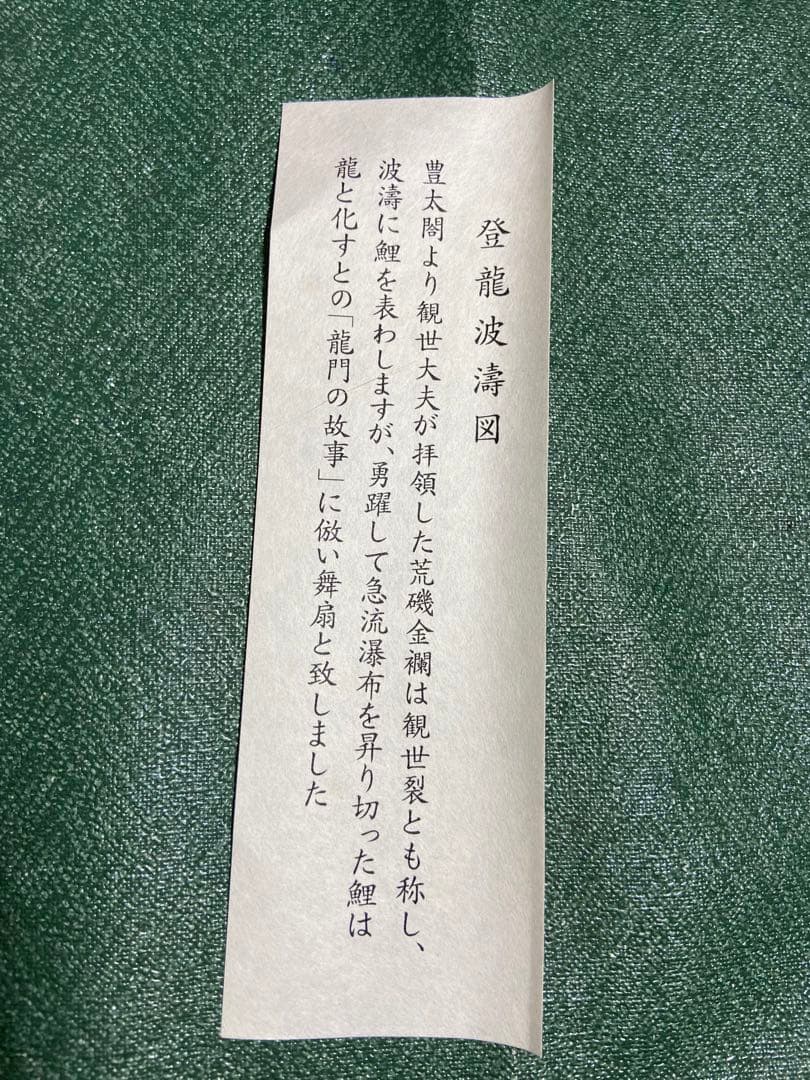 登龍波濤図
豊太閤より観世大夫が拝領した荒磯金襴は観世裂とも称し、
波濤に鯉を表わしますが、勇躍して急流瀑布を昇り切った鯉は
龍と化すとの「龍門の故事」に倣い舞扇と致しました